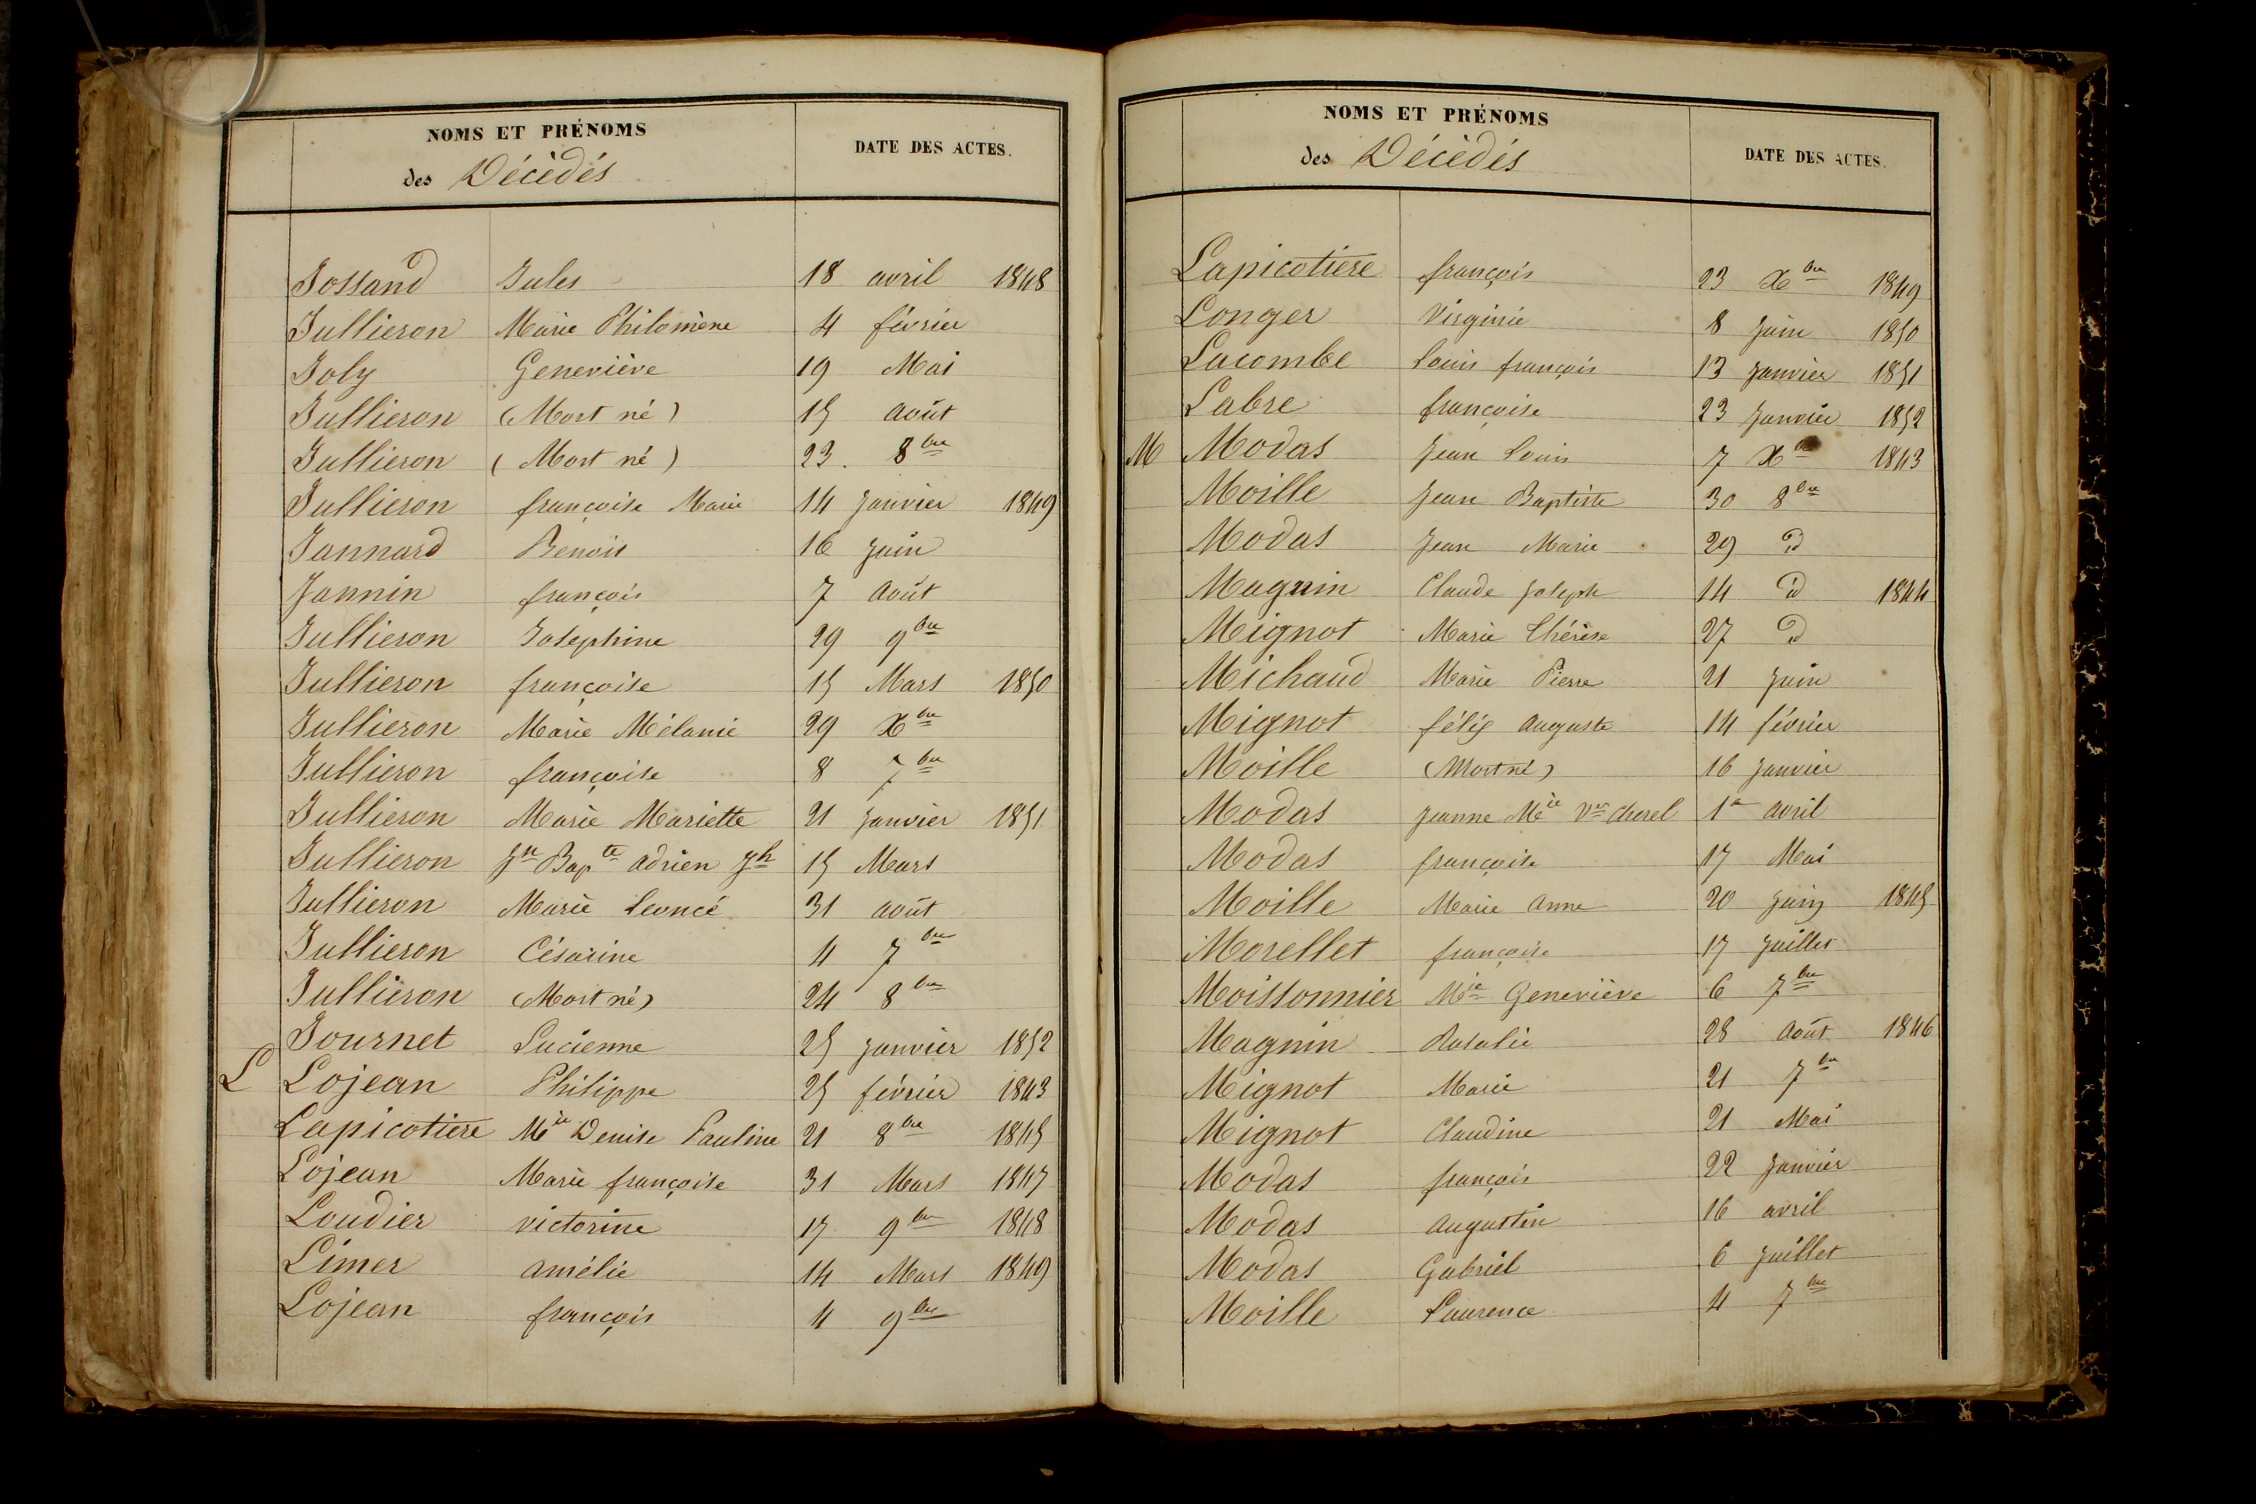 NOMS ET PRÉNOMS
des Décédés
DATE DES ACTES.
Jossand Jules 18 avril 1848
Jullieron Marie Philomène 4 février
Joly Geneviève 19 Mai
Jullieron (Mort né) 15 août
Jullieron (Mort né) 23. 8bre
Jullieron françoise Marie 14 Janvier 1849
Jannard Benoit 16 Juin
Jannin françois 7 Août
Jullieron Josephine 29 9bre
Jullieron françoise 15 Mars 1850
Jullieron Marie Mélanie 29 Xbre
Jullieron françoise 8 7bre
Jullieron Marie Mariette 21 Janvier 1851
Jullieron Jn Bapte adrien Jh 15 Mars
Jullieron Marie Leoncé 31 août
Jullieron Césarine 4 7bre
Jullieron (Mort né) 24 8bre
Journet Lucienne 25 Janvier 1852
L Lojean Philippe 25 février 1843
Lapicotiere Mie Denise Pauline 21 8bre 1845
Lojean Marie françoise 31 Mars 1847
Loudier victorine 17 9bre 1848
Limer amélie 14 Mars 1849
Lojean françois 4 9bre
NOMS ET PRÉNOMS
des Décédés
DATE DES ACTES.
Lapicotiere françois 23 Xbre 1849
Longer Virginie 8 Juin 1850
Lacombe Louis françois 13 Janvier 1851
Labre françoise 23 Janvier 1852
M Modas Jean Louis 7 Xbre 1843
Moille Jean Baptiste 30 8bre
Modas Jean Marie 29 d
Magnin Claude Joseph 14 d 1844
Mignot Marie Thérèse 27 d
Michaud Marie Pierre 21 Juin
Mignot félix auguste 14 février
Moille (Mort né) 16 Janvier
Modas Jeanne Mie Ve Charel 1er avril
Modas françoise 17 Mai
Moille Marie Anne 20 Juin 1845
Morellet françoise 17 Juillet
Moissonnier Mie Geneviève 6 7bre
Magnin Rosalie 28 Août 1846
Mignot Marie 21 7bre
Mignot Claudine 21 Mai
Modas françois 22 Janvier
Modas augustin 16 avril
Modas Gabriel 6 Juillet
Moille Laurence 4 7bre